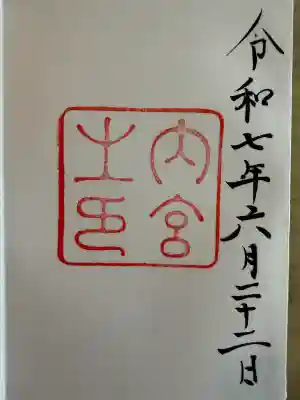 令和七年六月二十二日
内宮
之印